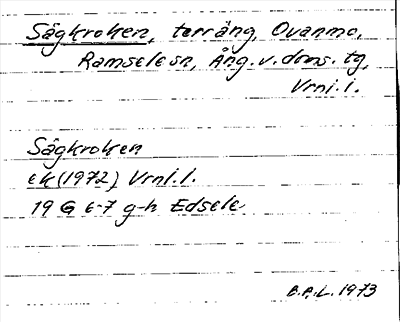 Sågkroken, terräng, Ovanmo,
Ramsele sn, Ång. v. doms. tg,
Vrnl.l.
Sågkroken
ek (1972) Vrnl.l.
19 G 6-7 g-h Edsele
B.A.L. 1973